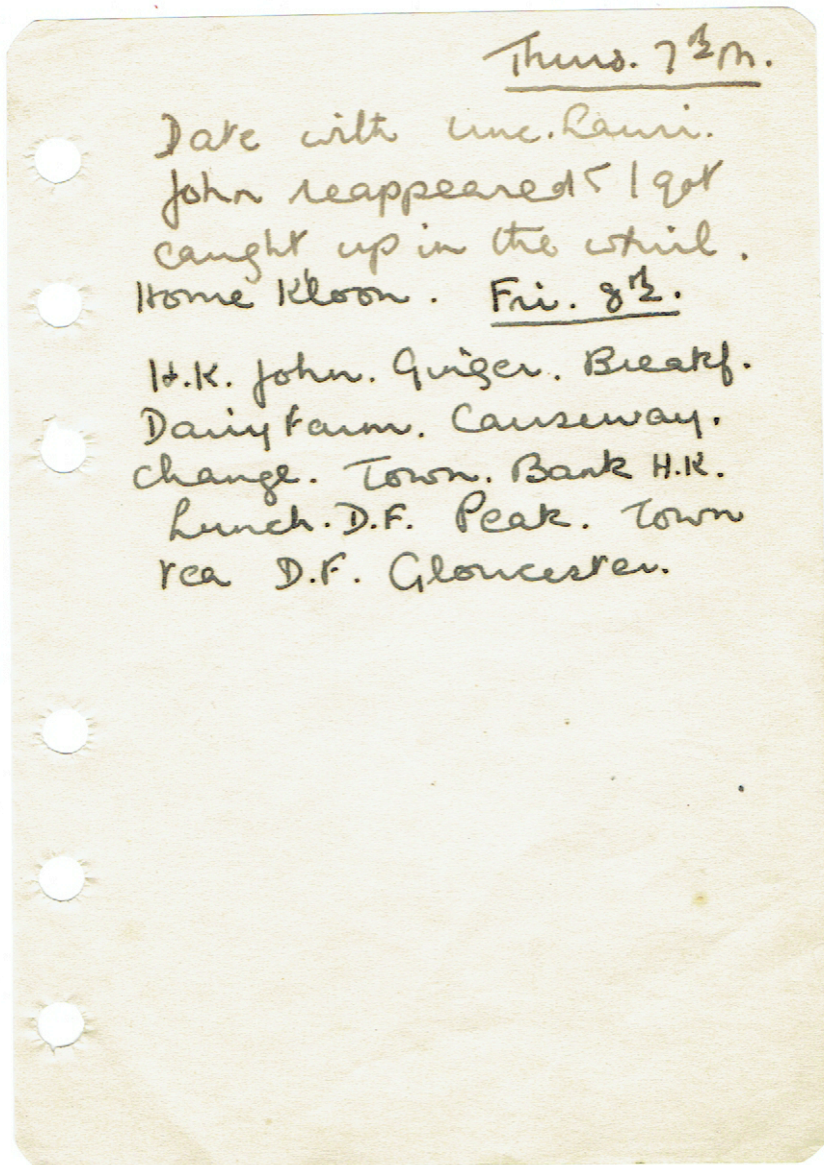 Thurs. 7th M.
Date with Unc. Lauri.
John reappeared & I got
caught up in the whirl.
Home K'loon. Fri. 8th.
H.K. John. Ginger. Breakf.
Dairy Farm. Causeway.
Change. Town. Bank H.K.
Lunch. D.F. Peak. Town
tea D.F. Gloucester.